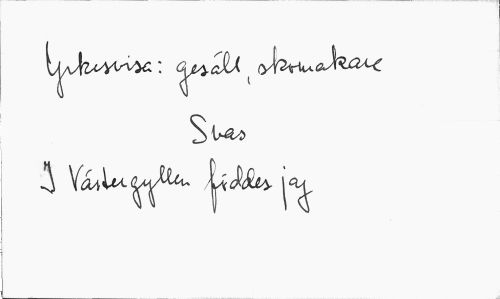 Yrkesvisa: gesäll, skomakare
Svas
I Västergyllen föddes jag